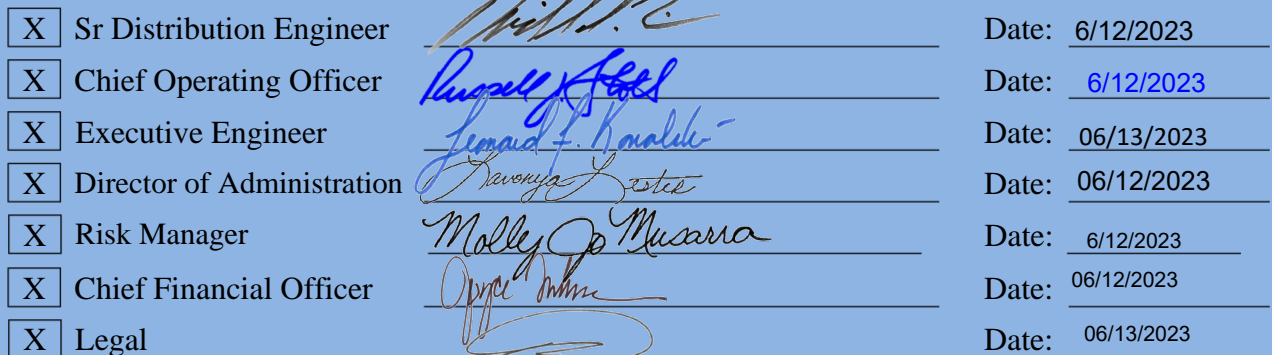 X Sr Distribution Engineer Date: 6/12/2023
X Chief Operating Officer Russell Date: 6/12/2023
X Executive Engineer Leonard F. Date: 06/13/2023
X Director of Administration Lavonya Lester Date: 06/12/2023
X Risk Manager Molly Jo Musarra Date: 6/12/2023
X Chief Financial Officer Joyce Date: 06/12/2023
X Legal Date: 06/13/2023